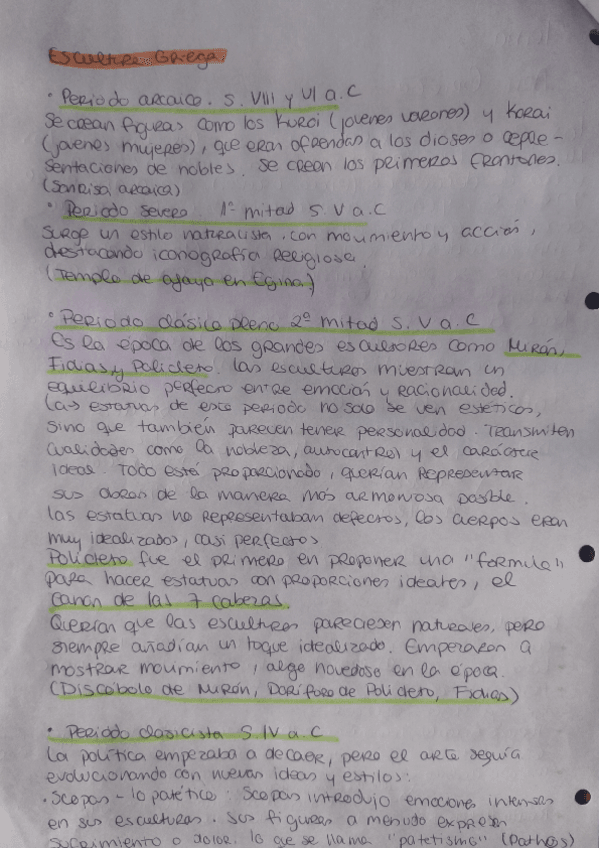 Escultura Griega:
• Periodo arcaico. S. VIII y VI a.C
Se crean figuras como los Kuroi (jovenes varones) y Korai
(jovenes mujeres), que eran ofrendas a los dioses o repre-
sentaciones de nobles. Se crean los primeros frontones.
(Sonrisa arcaica)
• Periodo severo 1ª mitad S V a.C
Surge un estilo naturalista, con movimiento y acción,
destacando iconografía religiosa.
(Templo de afaya en Egina)
• Periodo clásico pleno 2ª mitad S. V a.C
Es la época de los grandes escultores como Mirón,
Fidias y Policleto. Las esculturas muestran un
equilibrio perfecto entre emoción y racionalidad.
Las estatuas de este periodo no solo se ven estéticos,
sino que también parecen tener personalidad. Transmiten
cualidades como la nobleza, autocontrol y el carácter
ideal. Todo está proporcionado, querían representar
sus obras de la manera más armoniosa posible.
Las estatuas no representaban defectos, los cuerpos eran
muy idealizados, casi perfectos
Policleto fue el primero en proponer una "formula"
para hacer estatuas con proporciones ideales, el
canon de las 7 cabezas.
Querían que las esculturas pareciesen naturales, pero
siempre añadían un toque idealizado. Empezaron a
mostrar movimiento, algo novedoso en la época.
(Discóbolo de Mirón, Doríforo de Policleto, Fidias)
• Periodo clasicista S. IV a.C
La política empezaba a decaer, pero el arte seguía
evolucionando con nuevas ideas y estilos:
• Scopas - lo patético: Scopas introdujo emociones intensas
en sus esculturas. Sus figuras a menudo expresan
sufrimiento o dolor, lo que se llama "patetismo" (Pathos)